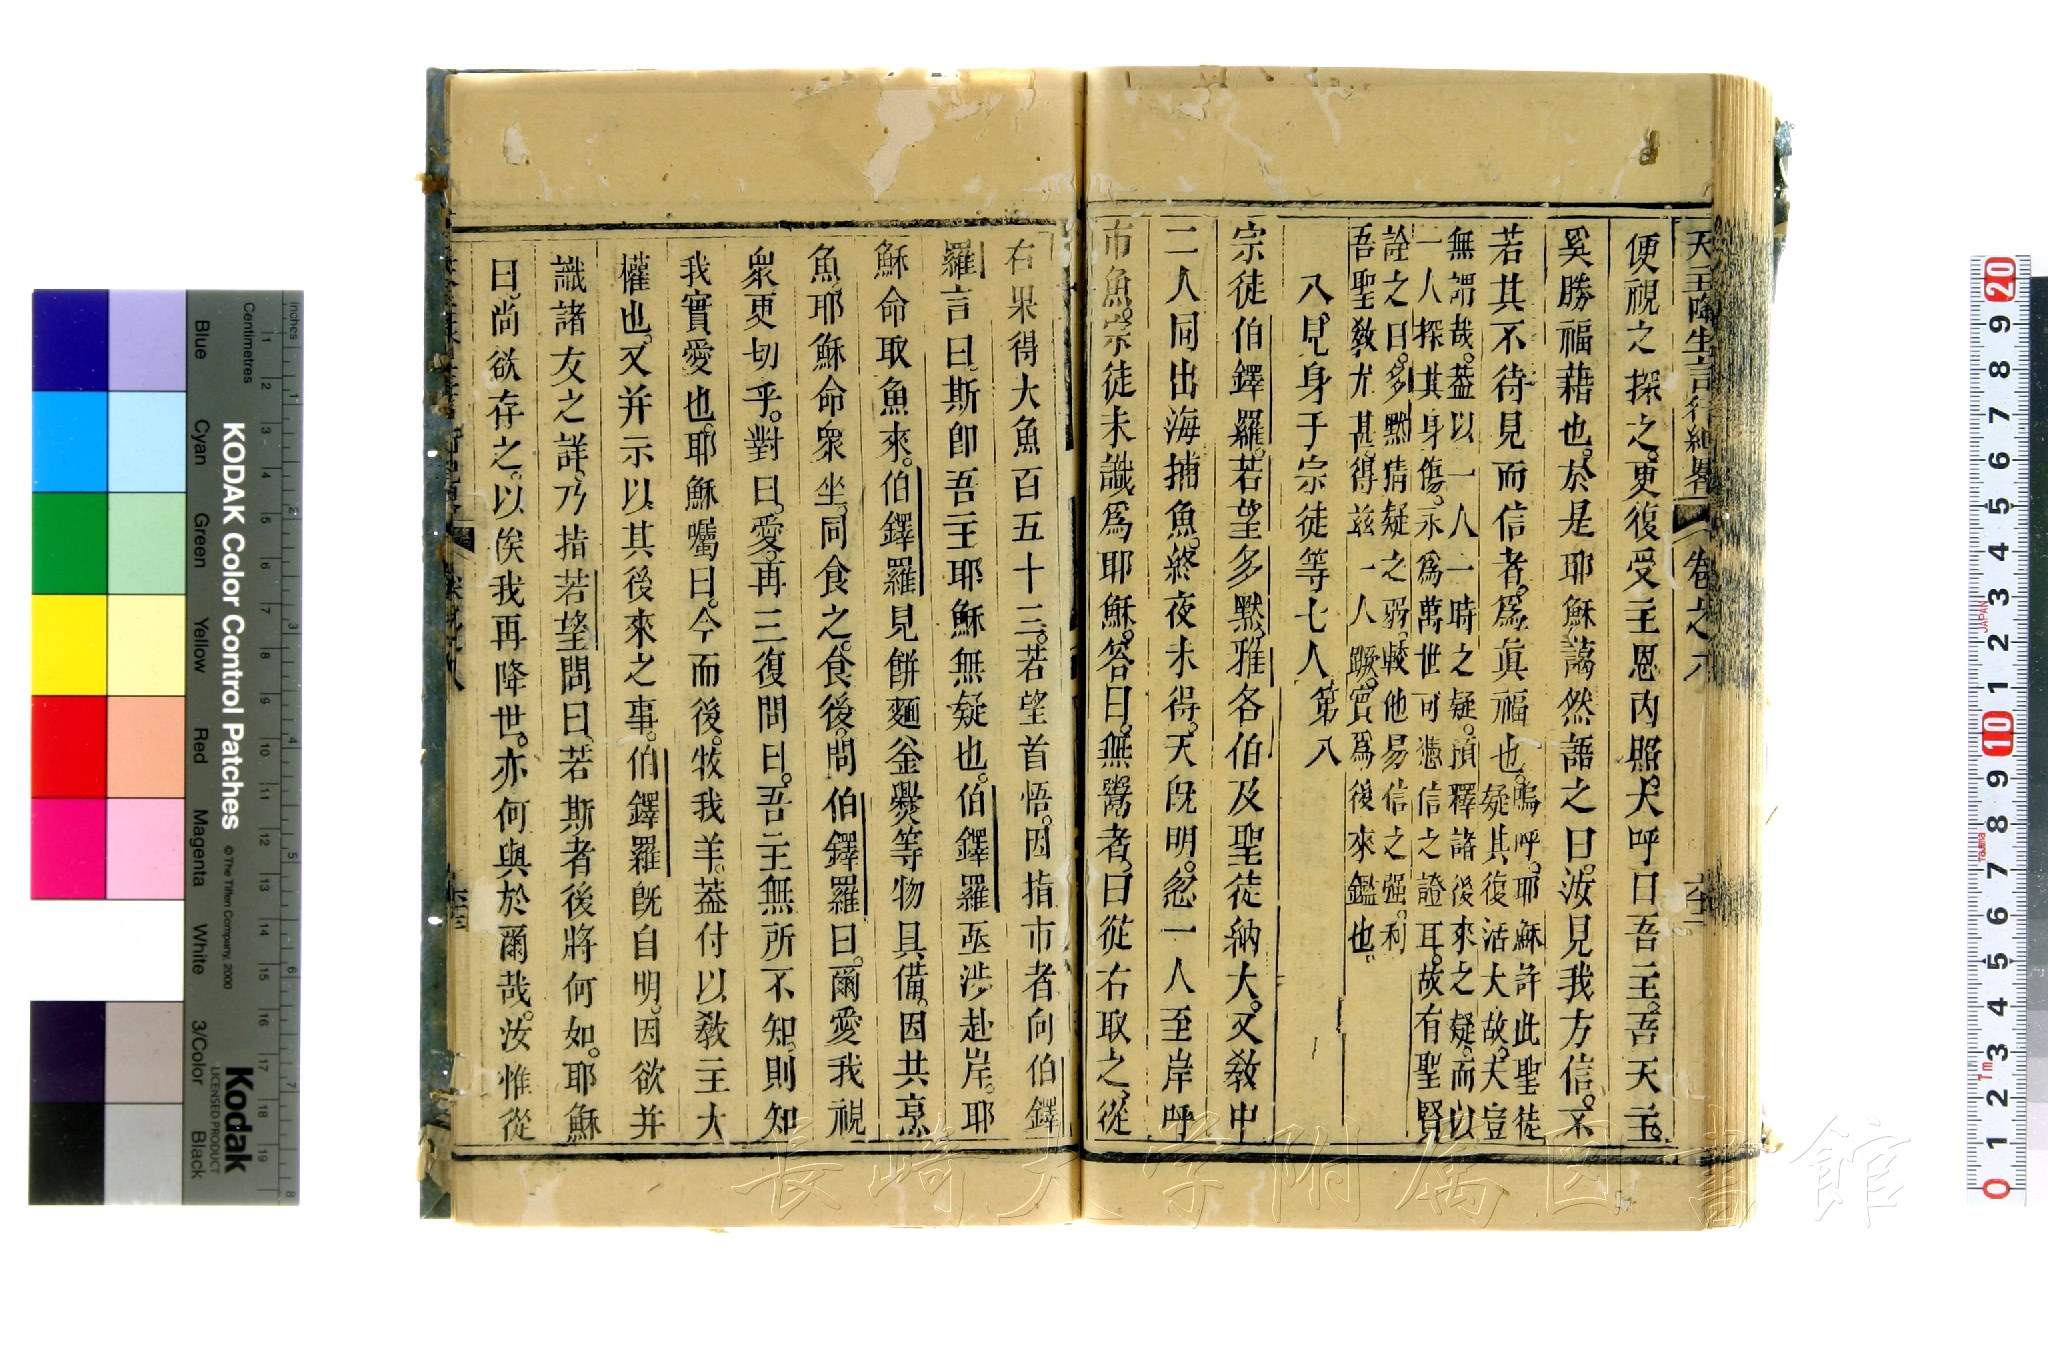 天主降生言行紀畧 卷之八
便視之探之。更復受主恩內照。大呼曰吾主。吾天主。
奚勝福藉也。於是耶穌藹然語之曰。汝見我方信。不
若其不待見而信者。爲眞福也。嗚呼。耶穌許此聖徒
疑其復活大故。夫豈
無謂哉。葢以一人一時之疑。預釋諸後來之疑。而以
一人探其身傷。永爲萬世可憑信之證耳。故有聖賢
詮之曰。多黙猜疑之弱。較他易信之强。利
吾聖敎尤甚。得兹一人蹶。實爲後來鑑也。
八見身于宗徒等七人 第八
宗徒伯鐸羅。若望多黙。雅各伯及聖徒納大。又敎中
二人同出海捕魚。終夜未得。天旣明。忽一人至岸呼
市魚。宗徒未識爲耶穌。答曰。無鬻者。曰從右取之。從
右果得大魚百五十三。若望首悟。因指市者向伯鐸
羅言曰。斯卽吾主耶穌無疑也。伯鐸羅亟涉赴岸。耶
穌命取魚來。伯鐸羅見餅麵釜爨等物具備。因共烹
魚。耶穌命衆坐。同食之。食後。問伯鐸羅曰。爾愛我視
衆更切乎。對曰。愛。再三復問曰。吾主無所不知。則知
我實愛也。耶穌囑曰。今而後。牧我羊。葢付以敎主大
權也。又并示以其後來之事。伯鐸羅旣自明。因欲并
識諸友之詳。乃指若望問曰。若斯者後將何如。耶穌
曰。尚欲存之。以俟我再降世。亦何與於爾哉。汝惟從
長崎大学附属図書館
KODAK Color Control Patches
© The Tiffen Company, 2000
Kodak
LICENSED PRODUCT
Inches
Centimetres
Blue
Cyan
Green
Yellow
Red
Magenta
White
3/Color
Black
JAPAN